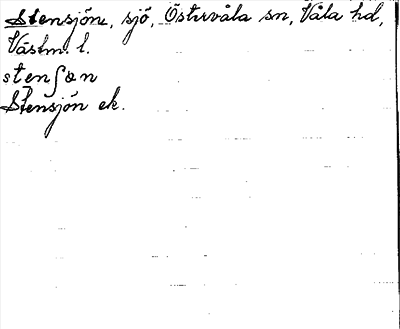 Stensjön, sjö, Östervåla sn, Våla hd,
Västm. l.
stenʃøn
Stensjön ek.